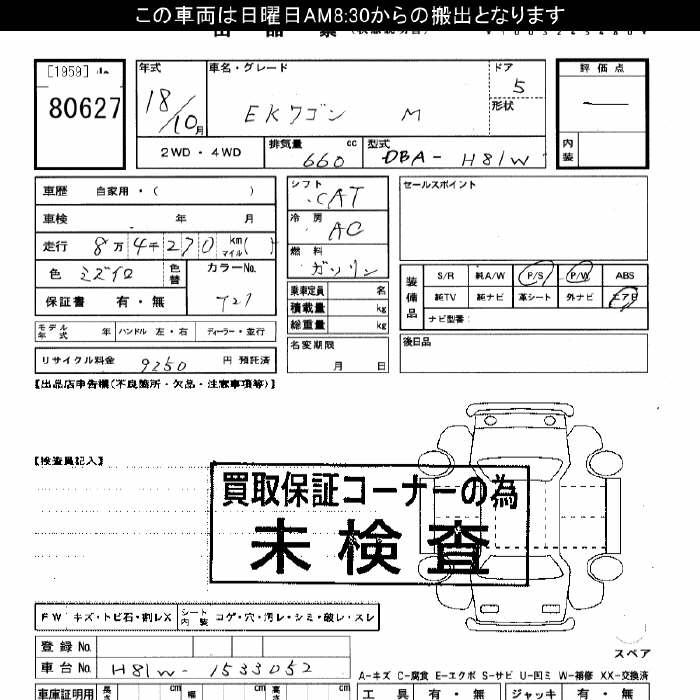 この車両は日曜日AM8:30からの搬出となります
[1959]
80627
年式
18/10月
車名・グレード
EKワゴン M
ドア
5
形状
評価点
内装
2WD・4WD
排気量
660 cc
型式
DBA-H81W
車歴 自家用・( )
車検 年 月
走行 8万4千270 km マイル( )
色 ミズイロ
色替
カラーNo.
T27
保証書 有・無
シフト
CAT
冷房
AC
燃料
ガソリン
乗車定員 名
積載量 kg
総重量 kg
セールスポイント
装備品
S/R 純A/W P/S P/W ABS
純TV 純ナビ 革シート 外ナビ エアB
ナビ型番:
モデル年式 年 ハンドル 左・右 ディーラー・並行
リサイクル料金 9250 円 預託済
名変期限
月 日
後日品
【出品店申告欄(不良箇所・欠品・注意事項等)】
【検査員記入】
買取保証コーナーの為
未検査
FW キズ・トビ石・割レX
シート内装 コゲ・穴・汚レ・シミ・破レ・スレ
登録No.
車台No. H81W-1533052
スペア
A-キズ C-腐食 E-エクボ S-サビ U-凹ミ W-補修 XX-交換済
車庫証明用 長さ cm 幅 cm 高さ cm
工具 有・無 ジャッキ 有・無